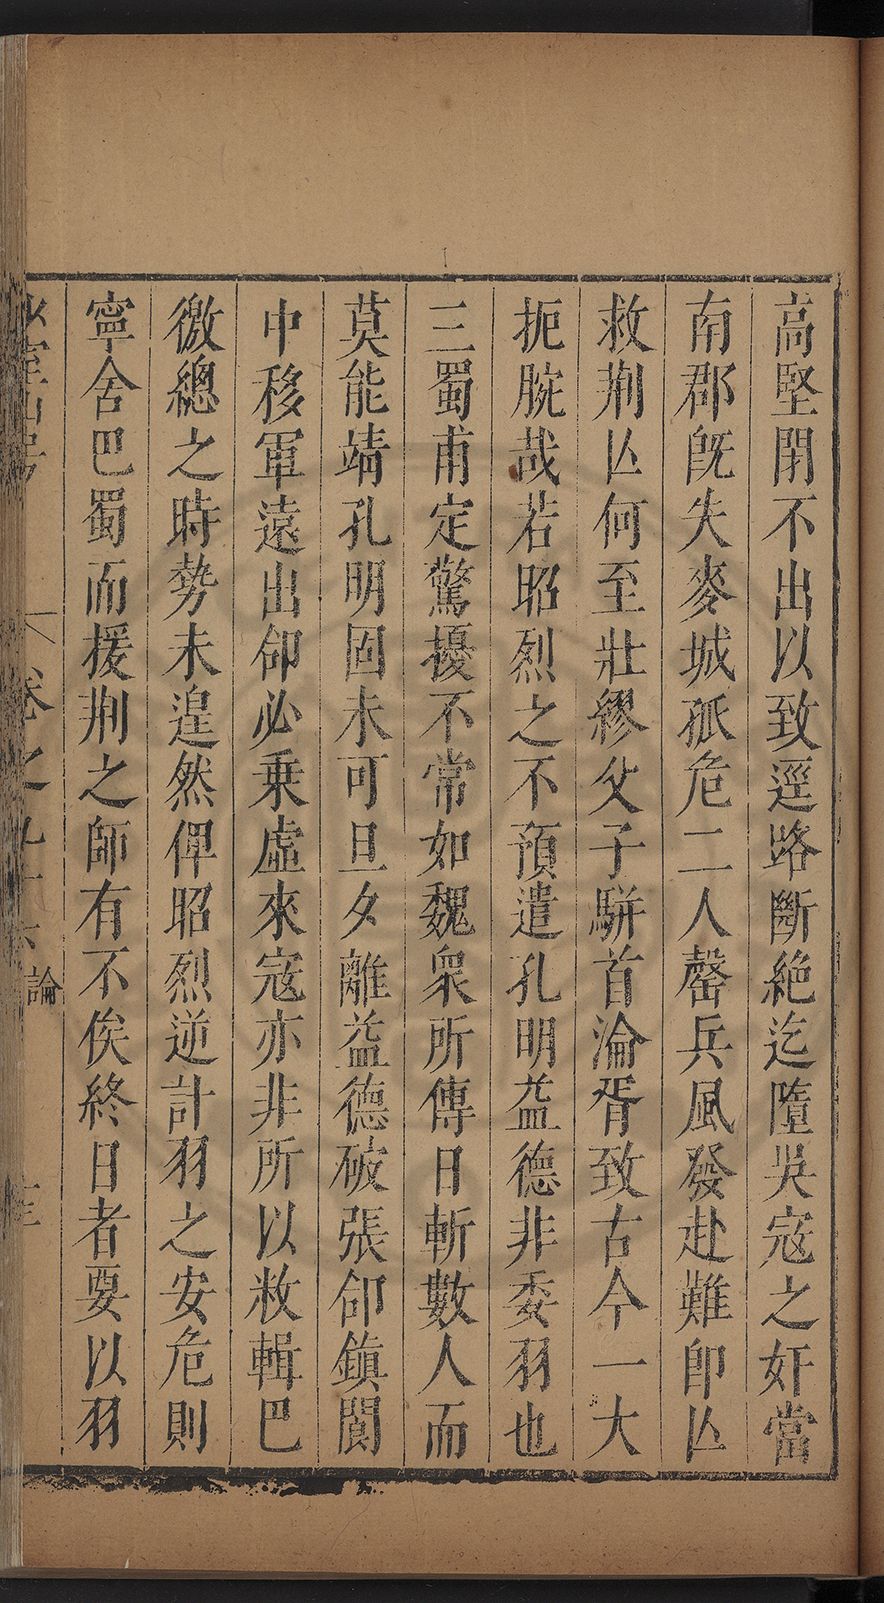 高堅閉不出以致逕路斷絕迄墮吳宼之奸當
南郡旣失麥城孤危二人罄兵風發赴難卽亾
救荆亾何至壯繆父子駢首淪胥致古今一大
扼腕哉若昭烈之不預遣孔明益德非委羽也
三蜀甫定驚擾不常如魏衆所傳日斬數人而
莫能靖孔明固未可旦夕離益德破張郃鎮閬
中移軍遠出郃必乗虛來宼亦非所以敉輯巴
徼總之時勢未遑然俾昭烈逆計羽之安危則
寧舍巴蜀而援荆之師有不俟終日者要以羽
卷之九十六 論